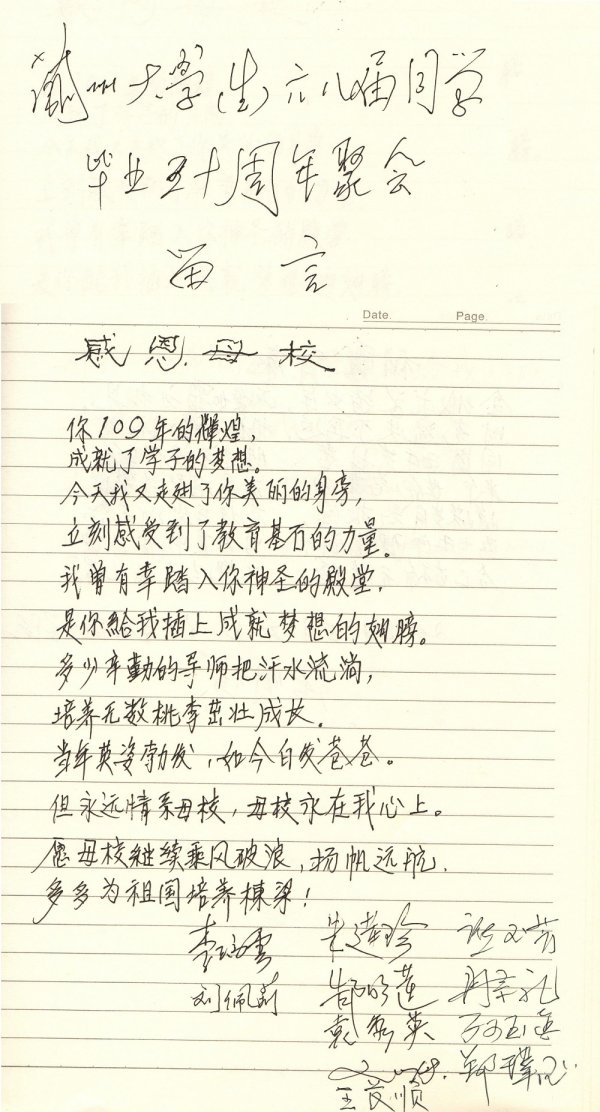 兰州大学(生)六八届同学
毕业五十周年聚会
留 言
Date. Page.
感恩母校
你109年的辉煌,
成就了学子的梦想。
今天我又走进了你美丽的身旁,
立刻感受到了教育基石的力量。
我曾有幸踏入你神圣的殿堂.
是你給我插上成就梦想的翅膀。
多少辛勤的导师把汗水流淌,
培养无数桃李茁壮成长.
当年英姿勃发,如今白发苍苍。
但永远情系母校,母校永在我心上。
愿母校继续乘风破浪,扬帆远航.
多多为祖国培养栋梁!
李培雲
刘佩莉 郜明莲
袁秀英
王茂顺